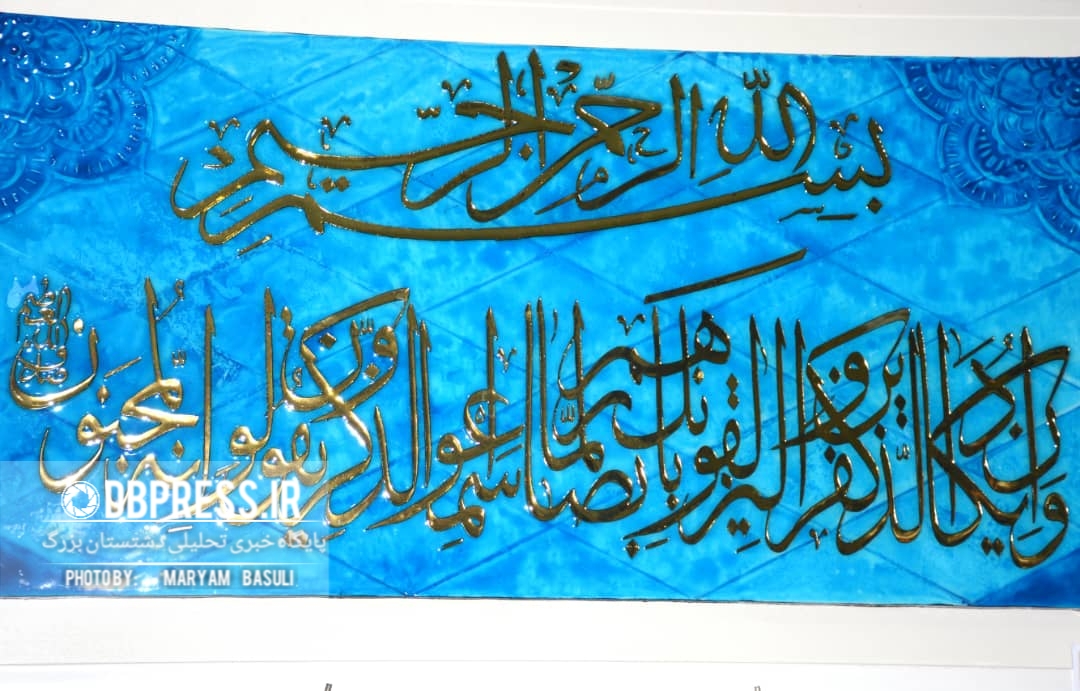 بسم الله الرحمن الرحیم
وان یکاد الذین کفروا لیزلقونک بابصارهم لما سمعوا الذکر ویقولون انه لمجنون
DBPRESS.IR
پایگاه خبری تحلیلی دشتستان بزرگ
PHOTO BY: MARYAM BASULI